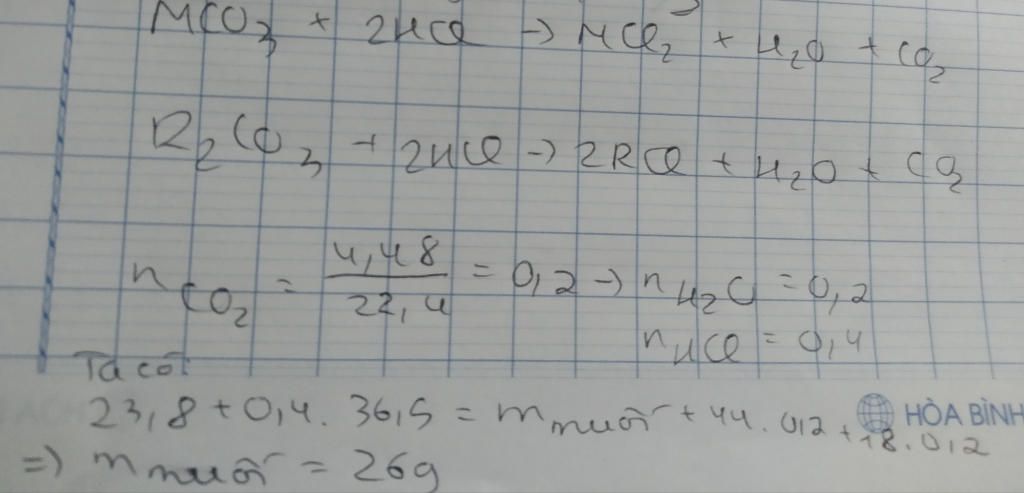 MCO₃ + 2HCl → MCl₂ + H₂O + CO₂
R₂CO₃ + 2HCl → 2RCl + H₂O + CO₂
n CO₂ = 4,48/22,4 = 0,2 → n H₂O = 0,2
n HCl = 0,4
Ta có:
23,8 + 0,4 . 36,5 = m muối + 44 . 0,2 + 18 . 0,2
HÒA BÌNH
=> m muối = 26g